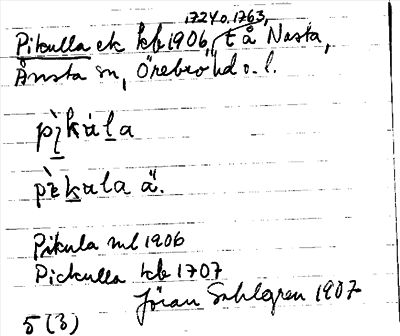 1724 o. 1763,
Pikulla ek kb 1906, t å Nasta,
Ånsta sn, Örebro hd o. l.
pìkála
pὲkala ä.
Pikula ml 1906
Pickulla kb 1707
Jöran Sahlgren 1907
5 (3)